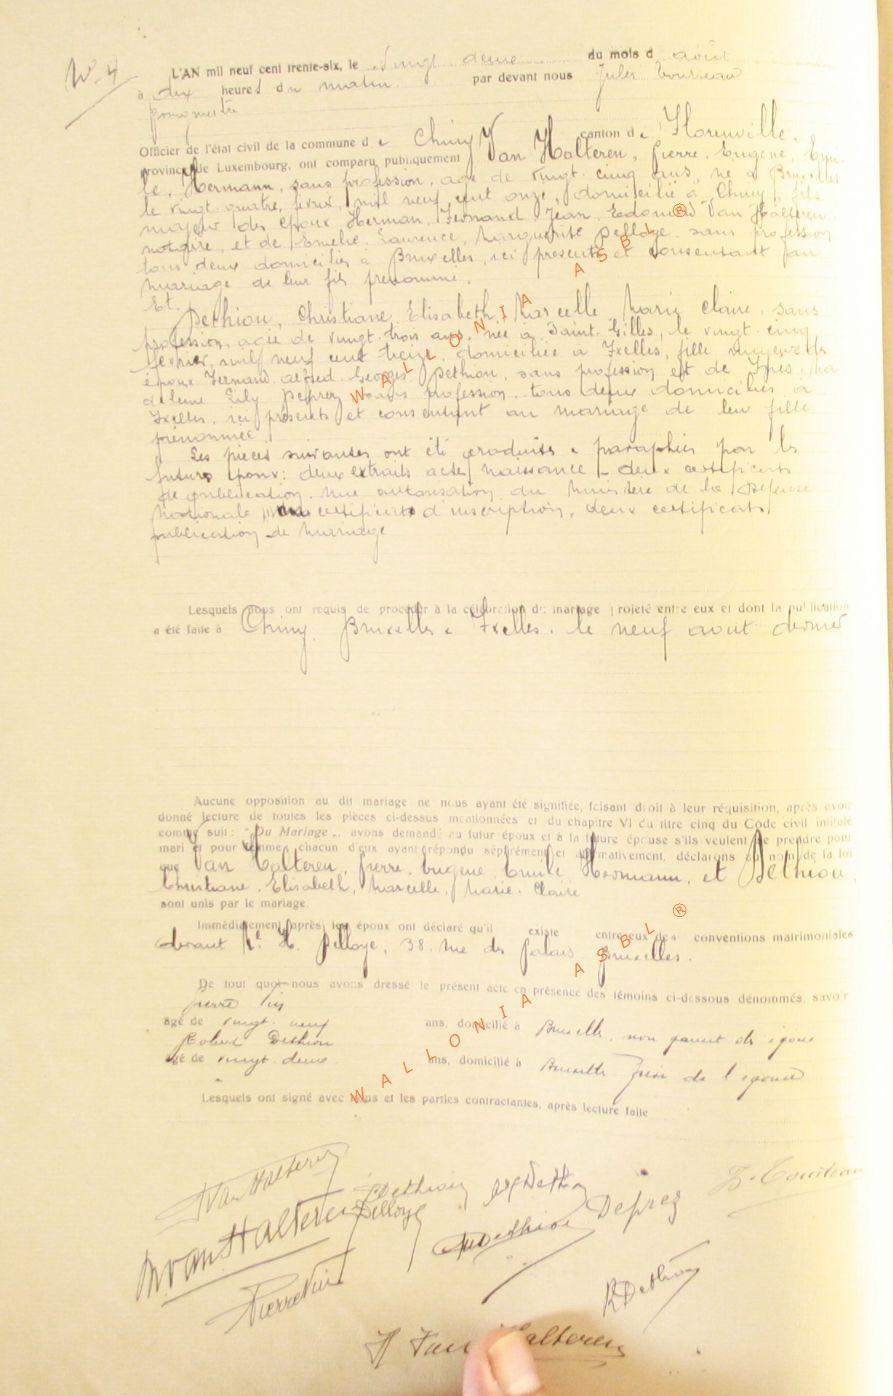 N° 4
L'AN mil neuf cent trente-six, le vingt deux du mois d août
à dix heures du matin par devant nous Jules
bourgmestre
Officier de l'état civil de la commune de Chiny canton de Florenville,
province de Luxembourg, ont comparu publiquement Van Halteren, Pierre, Eugène, Emi-
le, Hermann, sans profession, âgé de vingt cinq ans, né à Bruxelles
le vingt quatre, mil neuf cent onze, domicilié à Chiny, fils
majeur des époux Herman, Fernand, Jean, Edouard Van Halteren,
notaire, et de Emélie, Laurence, Marguerite Delloye, sans profession
tous deux domiciliés à Bruxelles, ici présents et consentant au
mariage de leur fils prénommé.
Et
Dethiou, Christiane, Elisabeth, Marcelle, Marie, Claire, sans
profession, agée de vingt trois ans, née à Saint-Gilles, le vingt cinq
février, mil neuf cent treize, domiciliée à Ixelles, fille majeure des
époux Fernand, Alfred, Georges Dethiou, sans profession et de Ma
deleine Lily Deprez sans profession tous deux domiciliés à
Ixelles, ici présents et consentant au mariage de leur fille
prénommée.
Les pièces suivantes ont été produites & paraphées par les
futurs époux: deux extraits actes naissance - deux certificats
de publication, une autorisation du Ministère de la Défense
Nationale certificats d'inscription, deux certificats
publication de mariage
Lesquels nous ont requis de procéder à la célébration du mariage projeté entre eux et dont la publication
a été faite à Chiny, Bruxelles & Ixelles, le neuf aout dernier
Aucune opposition au dit mariage ne nous ayant été signifiée, faisant droit à leur réquisition, après avoir
donné lecture de toutes les pièces ci-dessus mentionnées et du chapitre VI du titre cinq du Code civil intitulé
comme suit : "Du Mariage", avons demandé au futur époux et à la future épouse s'ils veulent se prendre pour
mari et pour femme, chacun d'eux ayant répondu séparément et affirmativement, déclarons au nom de la loi
que Van Halteren, Pierre, Eugène, Emile, Hermann, et Dethiou,
Christiane, Elisabeth, Marcelle, Marie, Claire
sont unis par le mariage.
Immédiatement après les époux ont déclaré qu'il existe entre eux des conventions matrimoniales
devant Me H. Delloye, 38, rue du Palais Bruxelles.
De tout quoi nous avons dressé le présent acte en présence des témoins ci-dessous dénommés, savoir
Pierre
agé de vingt neuf ans, domicilié à Bruxelles, non parent des époux
Robert Dethiou
agé de vingt deux ans, domicilié à Bruxelles frère de l'épouse
Lesquels ont signé avec nous et les parties contractantes, après lecture faite
Van Halteren
Dethiou
Delloye
Dethiou
Deprez
Van Halteren
Dethiou
Pierre
R Dethiou
H Van Halteren
WALLONIA ASBL ®
WALLONIA ASBL ®